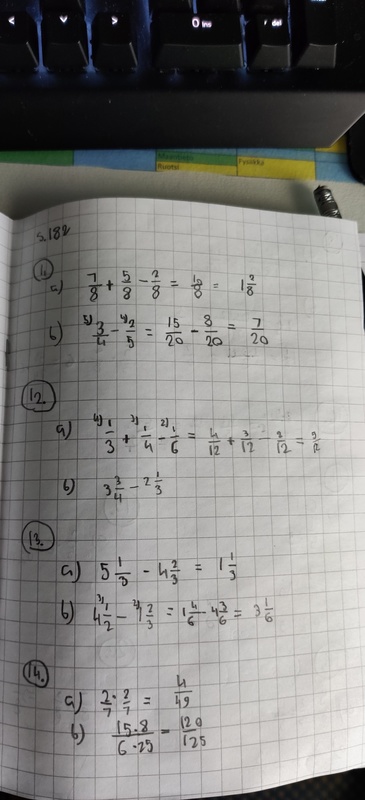 0 Ins
. del
Matematiikka
Ruotsi
Fysiikka
s.182
11.
a) 7/8 + 5/8 - 2/8 = 10/8 = 1 2/8
b) 5) 3/4 - 4) 2/5 = 15/20 - 8/20 = 7/20
12.
a) 4) 1/3 + 3) 1/4 - 2) 1/6 = 4/12 + 3/12 - 2/12 = 5/12
b) 3 3/4 - 2 1/3
13.
a) 5 1/3 - 4 2/3 = 1 1/3
b) 3) 4 1/2 - 2) 1 2/3 = 1 4/6 - 4 3/6 = 3 1/6
14.
a) 2/7 · 2/7 = 4/49
b) 15·8/6·25 = 120/125